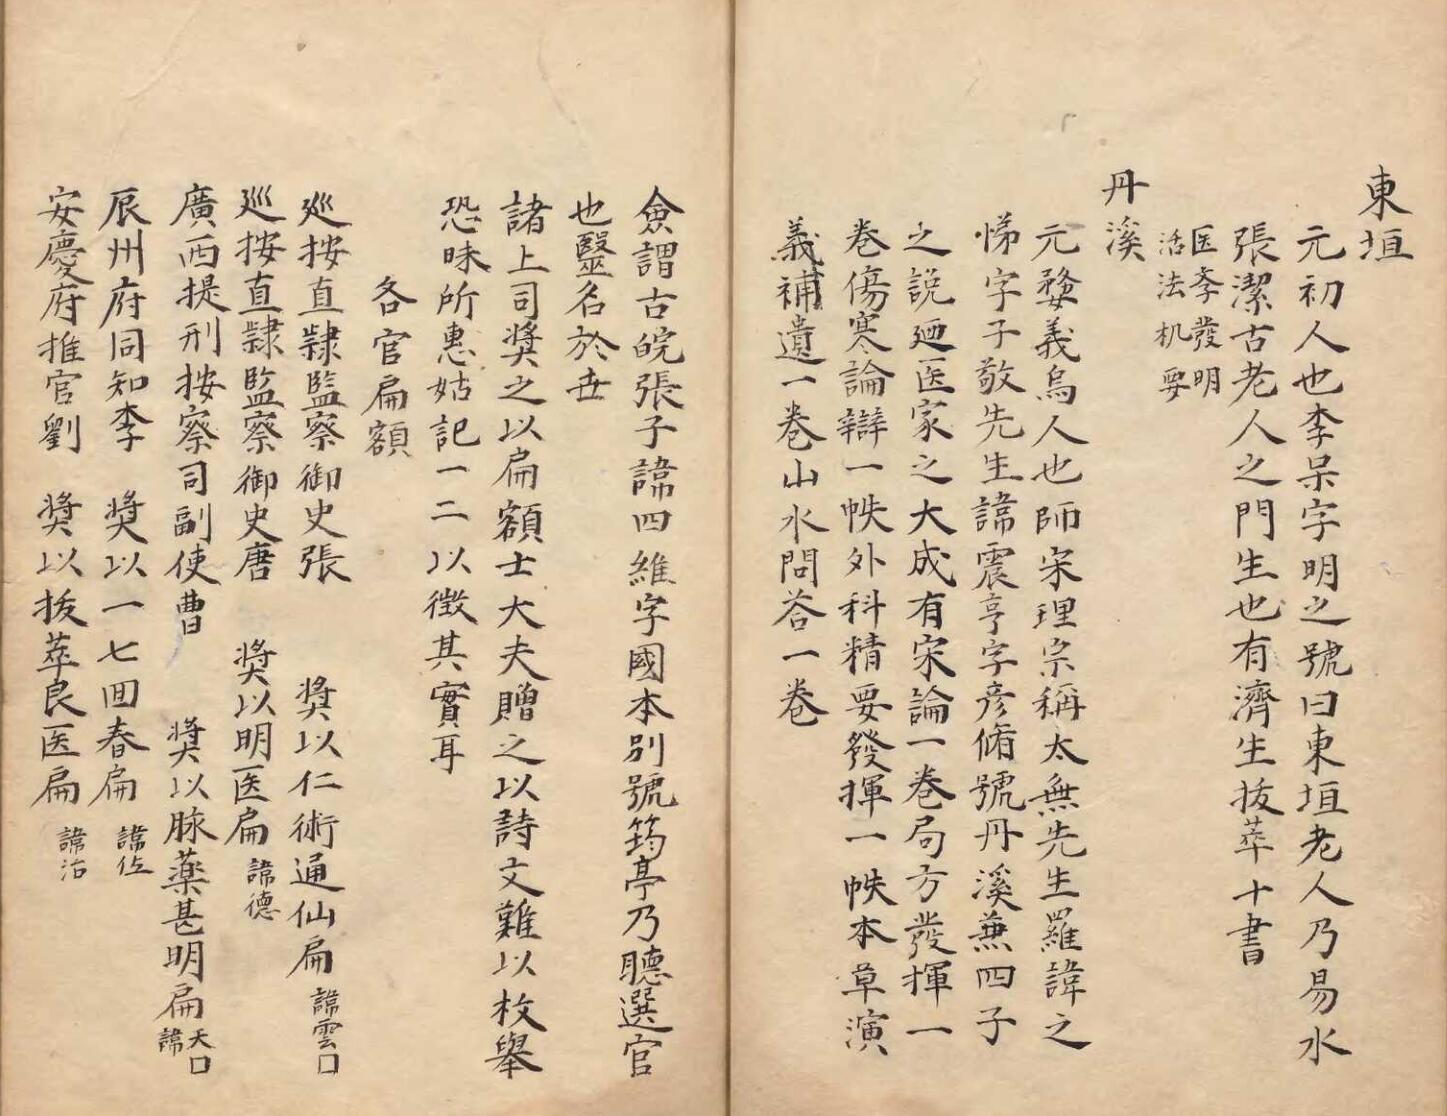 東垣
元初人也李杲字明之號曰東垣老人乃易水
張潔古老人之門生也有濟生拔萃十書
医孝發明
活法机要
丹溪
元婺義烏人也師宋理宗稱太無先生羅諱之
悌字子敬先生諱震亨字彦脩號丹溪兼四子
之説廼医家之大成有宋論一巻局方發揮一
巻傷寒論辯一帙外科精要發揮一帙本草演
義補遺一巻山水問荅一巻
僉謂古皖張子諱四維字國本别號筠亭乃聽選官
也毉名於世
諸上司奬之以扁額士大夫贈之以詩文難以枚舉
恐昧所惠姑記一二以徴其實耳
各官扁額
廵按直隷監察御史張 奬以仁術通仙扁 諱雲口
廵按直隷監察御史唐 奬以明医扁 諱德
廣西提刑按察司副使曹 奬以脉薬甚明扁 諱天口
辰州府同知李 奬以一七回春扁 諱佐
安慶府推官劉 奬以拔萃良医扁 諱治